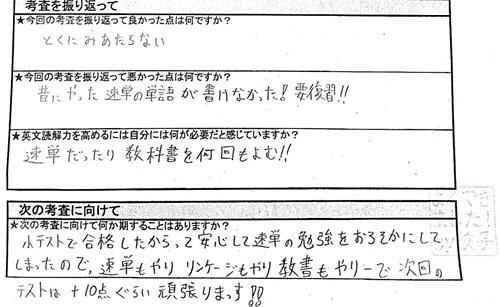 考査を振り返って
★今回の考査を振り返って良かった点は何ですか?
とくにみあたらない
★今回の考査を振り返って悪かった点は何ですか?
昔にやった速単の単語が書けなかった!要復習!!
★英文読解力を高めるには自分には何が必要だと感じていますか?
速単だったり教科書を何回もよむ!!
次の考査に向けて
★次の考査に向けて何か期することはありますか?
小テストで合格したからって安心して速単の勉強をおろそかにして
しまったので、速単もやりリンケージもやり教書もやりーで次回の
テストは+10点ぐらい頑張ります!!!